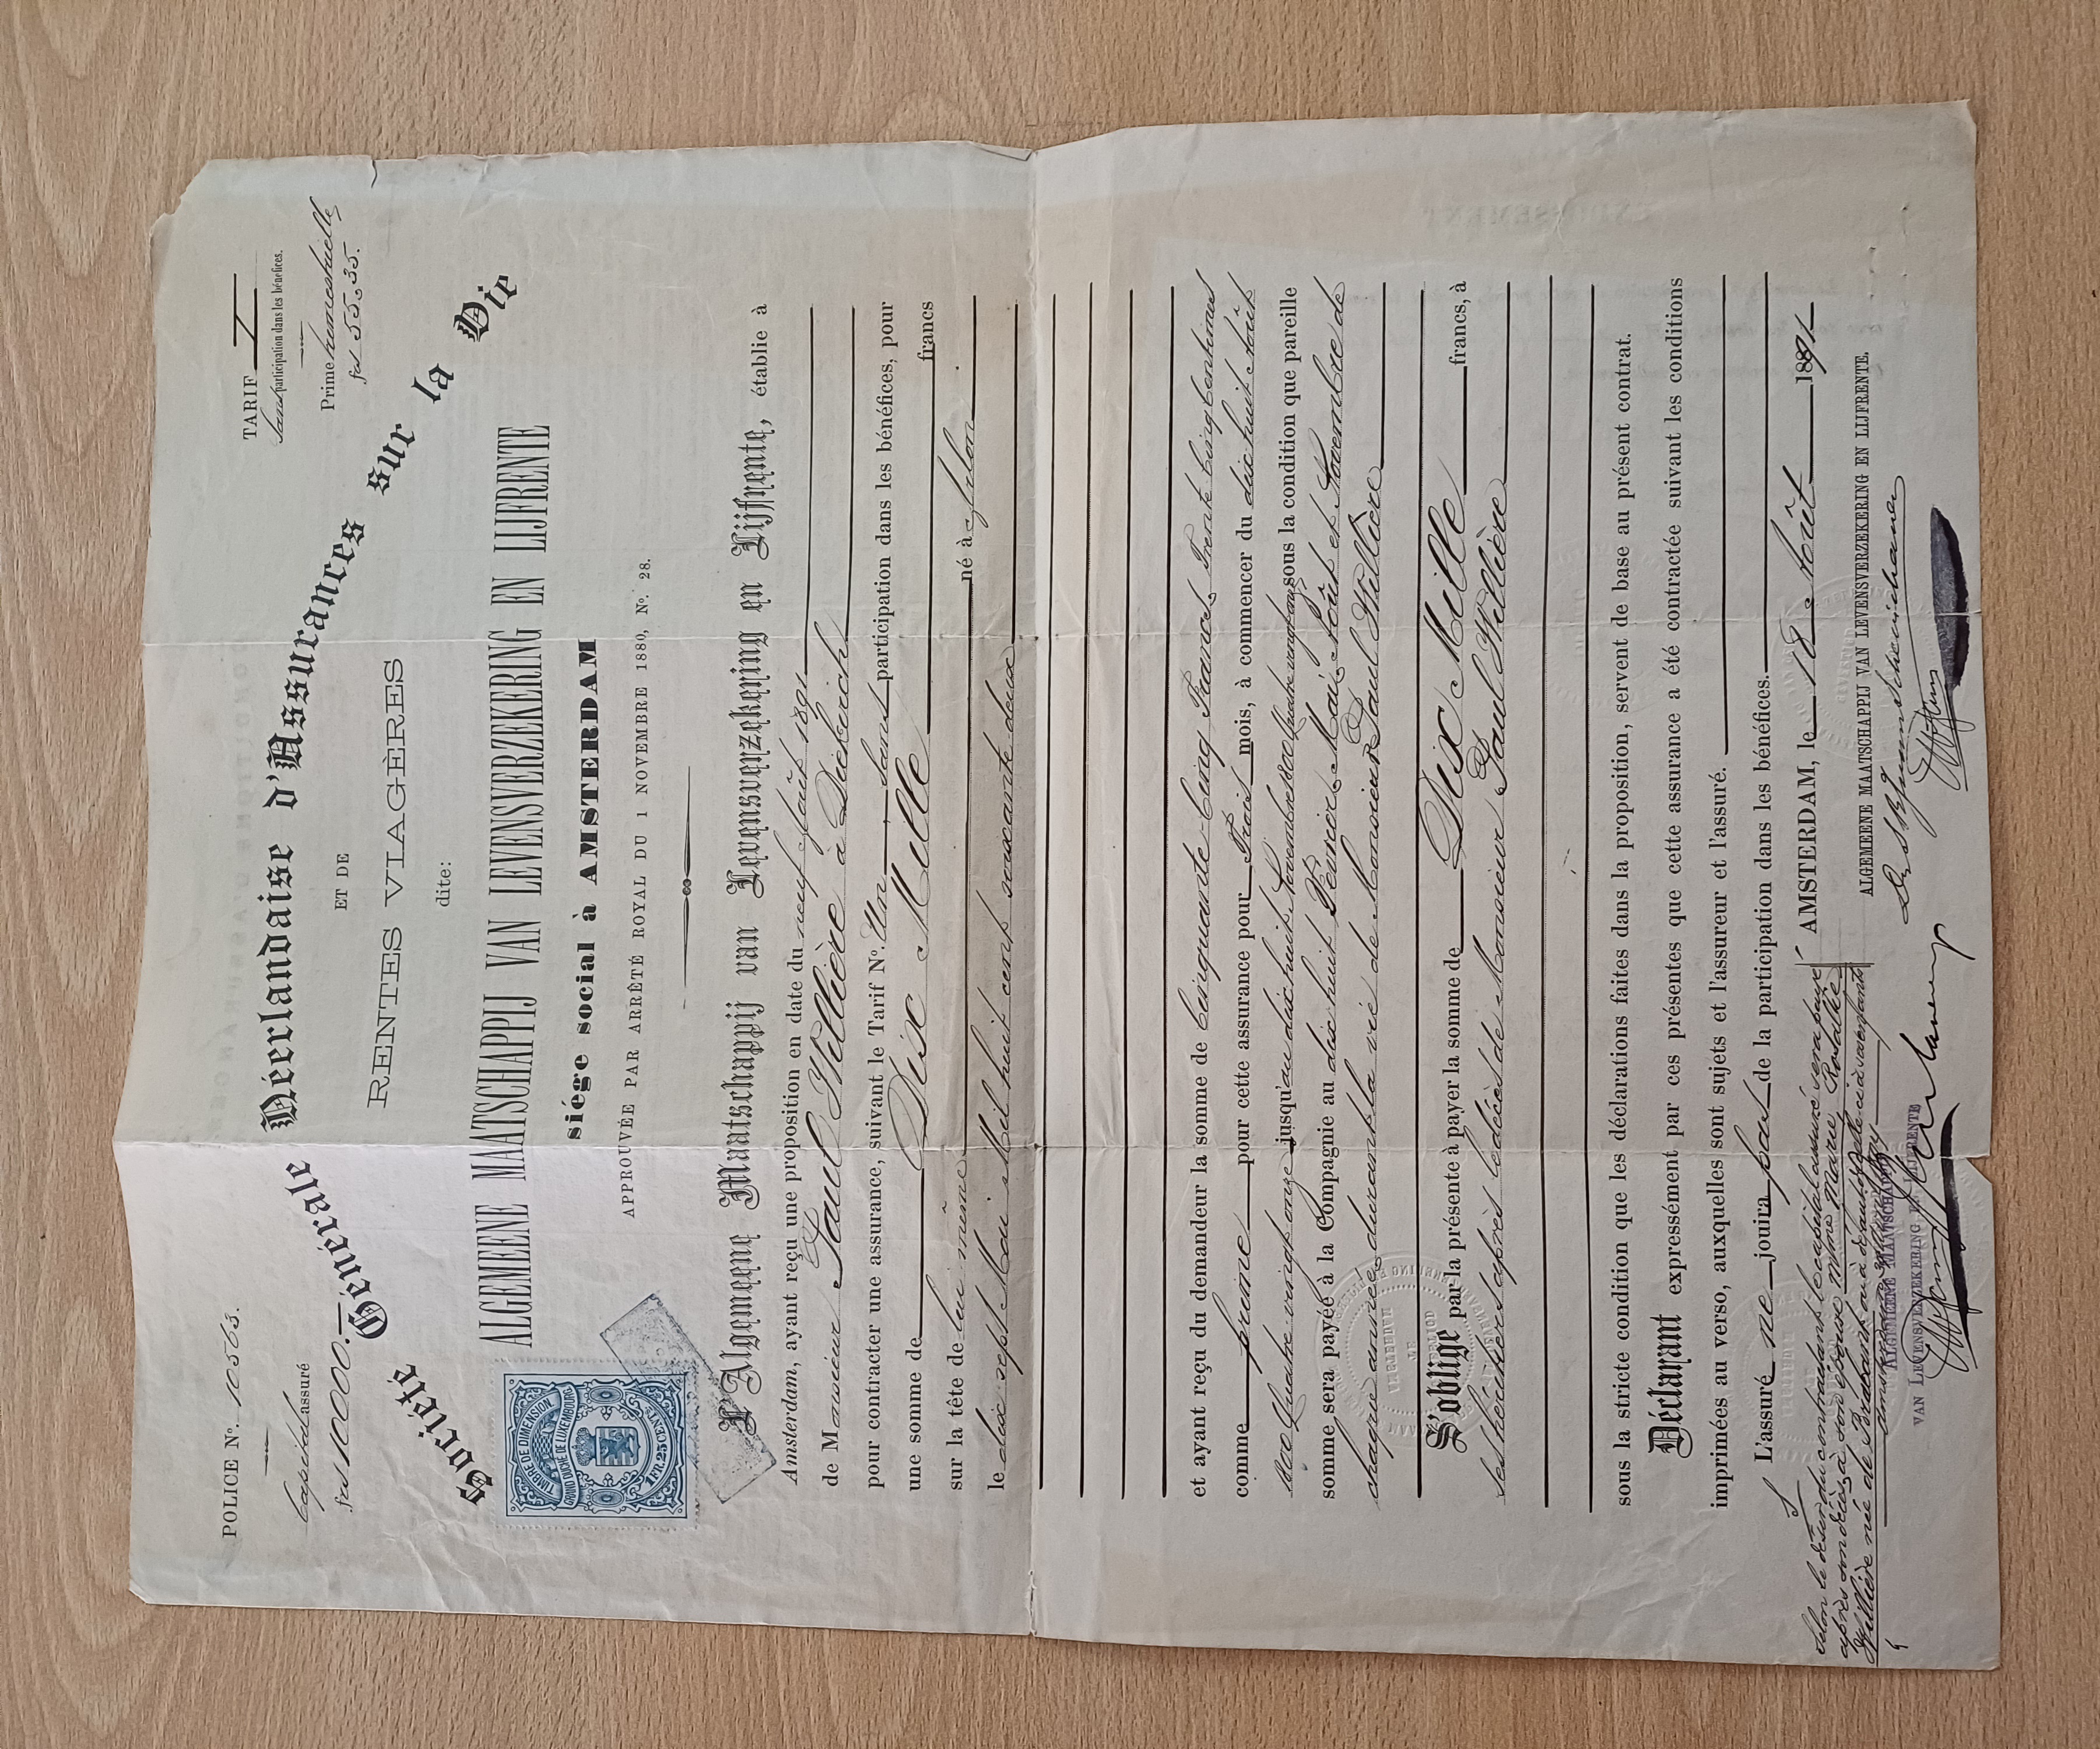 POLICE Nº. 10563.
Capital assuré
fcs 10000.—
TARIF I
Sans participation dans les bénéfices.
Prime trimestrielle
fcs 55.35.
Société Générale Néerlandaise d'Assurances sur la Vie
ET DE
RENTES VIAGÈRES
dite:
ALGEMEENE MAATSCHAPPIJ VAN LEVENSVERZEKERING EN LIJFRENTE
siége social à AMSTERDAM
APPROUVÉE PAR ARRÊTÉ ROYAL DU 1 NOVEMBRE 1880, Nº. 28.
TIMBRE DE DIMENSION
GRAND DUCHÉ DE LUXEMBOURG
1 FR. 25 CENTS
L'Algemeene Maatschappij van Levensverzekering en Lijfrente, établie à
Amsterdam, ayant reçu une proposition en date du neuf Août 1891
de Monsieur Paul Willière à Diekirch
pour contracter une assurance, suivant le Tarif Nº. Un, sans participation dans les bénéfices, pour
une somme de Dix Mille francs
sur la tête de lui même né à Arlon
le dix sept Mai Mil huit cent soixante deux
et ayant reçu du demandeur la somme de Cinquante Cinq Francs Trente Cinq Centimes
comme prime pour cette assurance pour Trois mois, à commencer du dix huit Août
1800 Quatre vingt onze jusqu'au dix huit Novembre 1800 Quatre vingt onze sous la condition que pareille
somme sera payée à la Compagnie au dix huit Février, Mai, Août et Novembre de
chaque année, durant la vie de Monsieur Paul Willière
S'oblige par la présente à payer la somme de Dix Mille francs, à
ses héritiers après le décès de Monsieur Paul Willière
sous la stricte condition que les déclarations faites dans la proposition, servent de base au présent contrat.
Déclarant expressément par ces présentes que cette assurance a été contractée suivant les conditions
imprimées au verso, auxquelles sont sujets et l'assureur et l'assuré.
L'assuré ne jouira pas de la participation dans les bénéfices.
AMSTERDAM, le 18 Août 1891
ALGEMEENE MAATSCHAPPIJ VAN LEVENSVERZEKERING EN LIJFRENTE.
Selon le désir du contractant le capital assuré sera payé
après son décès à son épouse Mme Marie Rosalie
Willière née de Brabant, à défaut de celle ci à ses enfants
ALGEMEENE MAATSCHAPPIJ
VAN LEVENSVERZEKERING EN LIJFRENTE